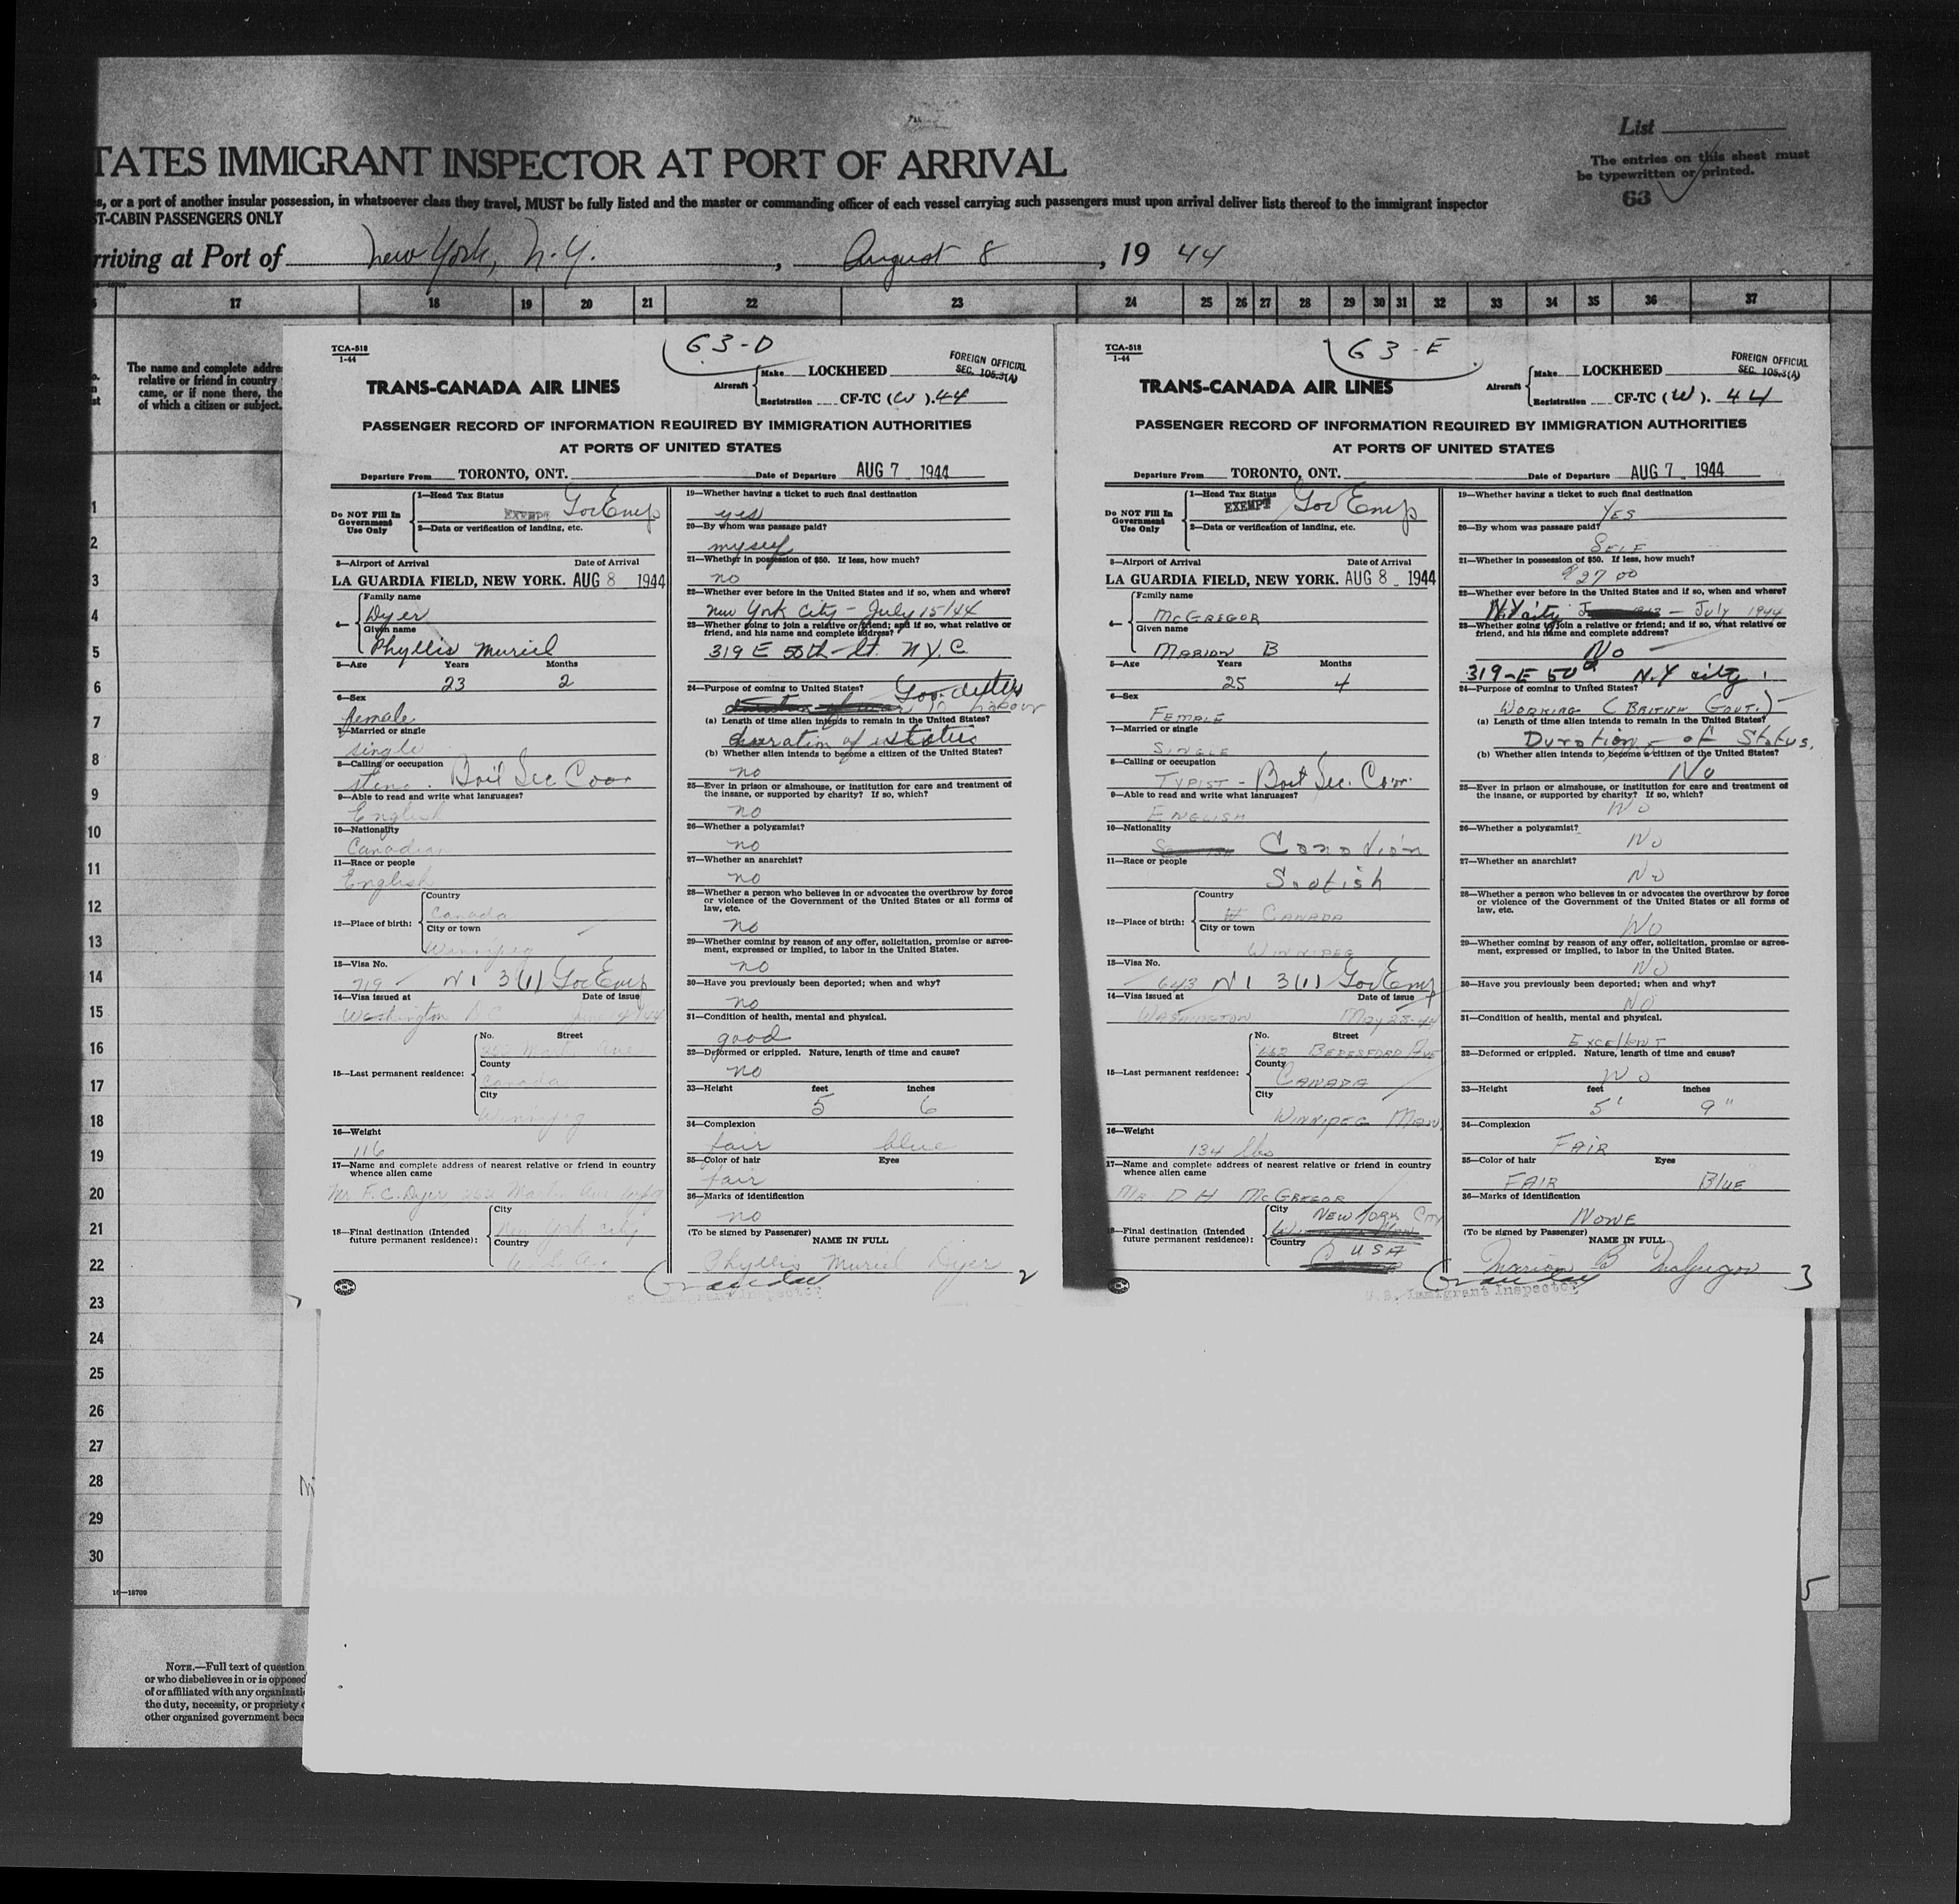 List
TATES IMMIGRANT INSPECTOR AT PORT OF ARRIVAL
The entries on this sheet must
be typewritten or printed.
63
s, or a port of another insular possession, in whatsoever class they travel, MUST be fully listed and the master or commanding officer of each vessel carrying such passengers must upon arrival deliver lists thereof to the immigrant inspector
ST-CABIN PASSENGERS ONLY
rriving at Port of New York, N.Y. , August 8 , 19 44
17 18 19 20 21 22 23 24 25 26 27 28 29 30 31 32 33 34 35 36 37
The name and complete addre
relative or friend in country
came, or if none there, the
of which a citizen or subject.
1
2
3
4
5
6
7
8
9
10
11
12
13
14
15
16
17
18
19
20
21
22
23
24
25
26
27
28
29
30
16—18709
NOTE.—Full text of question
or who disbelieves in or is opposed
of or affiliated with any organizati
the duty, necessity, or propriety o
other organized government beca
TCA-518
1-44
63-D
FOREIGN OFFICIAL
SEC. 105.3(A)
TRANS-CANADA AIR LINES
Aircraft Make LOCKHEED
Registration CF-TC (W). 44
PASSENGER RECORD OF INFORMATION REQUIRED BY IMMIGRATION AUTHORITIES
AT PORTS OF UNITED STATES
Departure From TORONTO, ONT. Date of Departure AUG 7 1944
Do NOT Fill In
Government
Use Only
1—Head Tax Status
EXEMPT Gov Emp
2—Data or verification of landing, etc.
3—Airport of Arrival Date of Arrival
LA GUARDIA FIELD, NEW YORK. AUG 8 1944
4— Family name
Dyer
Given name
Phyllis Muriel
5—Age Years Months
23 2
6—Sex
female
7—Married or single
single
8—Calling or occupation
steno. Brit Sec Coor
9—Able to read and write what languages?
English
10—Nationality
Canadian
11—Race or people
English
12—Place of birth: Country
Canada
City or town
Winnipeg
13—Visa No.
719 — N 1 3(1) Gov Emp
14—Visa issued at Date of issue
Washington D C
15—Last permanent residence: No. Street
County
Canada
City
Winnipeg
16—Weight
116
17—Name and complete address of nearest relative or friend in country
whence alien came
Mr F. C. Dyer,
18—Final destination (Intended
future permanent residence): City
New York City
Country
19—Whether having a ticket to such final destination
yes
20—By whom was passage paid?
myself
21—Whether in possession of $50. If less, how much?
no
22—Whether ever before in the United States and if so, when and where?
New York City — July 15/44
23—Whether going to join a relative or friend; and if so, what relative or
friend, and his name and complete address?
319 E 50th St. N.Y.C
24—Purpose of coming to United States?
Gov. duties
(a) Length of time alien intends to remain in the United States?
duration of status
(b) Whether alien intends to become a citizen of the United States?
no
25—Ever in prison or almshouse, or institution for care and treatment of
the insane, or supported by charity? If so, which?
no
26—Whether a polygamist?
no
27—Whether an anarchist?
no
28—Whether a person who believes in or advocates the overthrow by force
or violence of the Government of the United States or all forms of
law, etc.
no
29—Whether coming by reason of any offer, solicitation, promise or agree-
ment, expressed or implied, to labor in the United States.
no
30—Have you previously been deported; when and why?
no
31—Condition of health, mental and physical.
good
32—Deformed or crippled. Nature, length of time and cause?
no
33—Height feet inches
5 6
34—Complexion
fair blue
35—Color of hair Eyes
fair
36—Marks of identification
no
(To be signed by Passenger)
NAME IN FULL
Phyllis Muriel Dyer 2
Immigrant Inspector
TCA-518
1-44
63-E
FOREIGN OFFICIAL
SEC. 105.3(A)
TRANS-CANADA AIR LINES
Aircraft Make LOCKHEED
Registration CF-TC (W). 44
PASSENGER RECORD OF INFORMATION REQUIRED BY IMMIGRATION AUTHORITIES
AT PORTS OF UNITED STATES
Departure From TORONTO, ONT. Date of Departure AUG 7 1944
Do NOT Fill In
Government
Use Only
1—Head Tax Status
EXEMPT Gov Emp
2—Data or verification of landing, etc.
3—Airport of Arrival Date of Arrival
LA GUARDIA FIELD, NEW YORK. AUG 8 1944
4— Family name
McGREGOR
Given name
MARION B
5—Age Years Months
25 4
6—Sex
FEMALE
7—Married or single
SINGLE
8—Calling or occupation
TYPIST — Brit Sec. Coor.
9—Able to read and write what languages?
ENGLISH
10—Nationality
Canadian
11—Race or people
Scotish
12—Place of birth: Country
CANADA
City or town
WINNIPEG
13—Visa No.
643 N 1 3(1) Gov Emp
14—Visa issued at Date of issue
WASHINGTON May 25-44
15—Last permanent residence: No. Street
662 BERESFORD AVE
County
CANADA
City
WINNIPEG MAN
16—Weight
134 lbs
17—Name and complete address of nearest relative or friend in country
whence alien came
MR D H McGREGOR
18—Final destination (Intended
future permanent residence): City
NEW YORK CITY
Country
USA
19—Whether having a ticket to such final destination
YES
20—By whom was passage paid?
SELF
21—Whether in possession of $50. If less, how much?
$27 00
22—Whether ever before in the United States and if so, when and where?
N.Y city — July 1944
23—Whether going to join a relative or friend; and if so, what relative or
friend, and his name and complete address?
No
319-E 50th N.Y city.
24—Purpose of coming to United States?
WORKING (BRITISH GOVT.)
(a) Length of time alien intends to remain in the United States?
Duration of Status.
(b) Whether alien intends to become a citizen of the United States?
No
25—Ever in prison or almshouse, or institution for care and treatment of
the insane, or supported by charity? If so, which?
No
26—Whether a polygamist?
No
27—Whether an anarchist?
No
28—Whether a person who believes in or advocates the overthrow by force
or violence of the Government of the United States or all forms of
law, etc.
No
29—Whether coming by reason of any offer, solicitation, promise or agree-
ment, expressed or implied, to labor in the United States.
No
30—Have you previously been deported; when and why?
NO
31—Condition of health, mental and physical.
Excellent
32—Deformed or crippled. Nature, length of time and cause?
No
33—Height feet inches
5' 9"
34—Complexion
FAIR
35—Color of hair Eyes
FAIR BLUE
36—Marks of identification
NONE
(To be signed by Passenger)
NAME IN FULL
Marion B McGregor 3
U.S. Immigrant Inspector
5